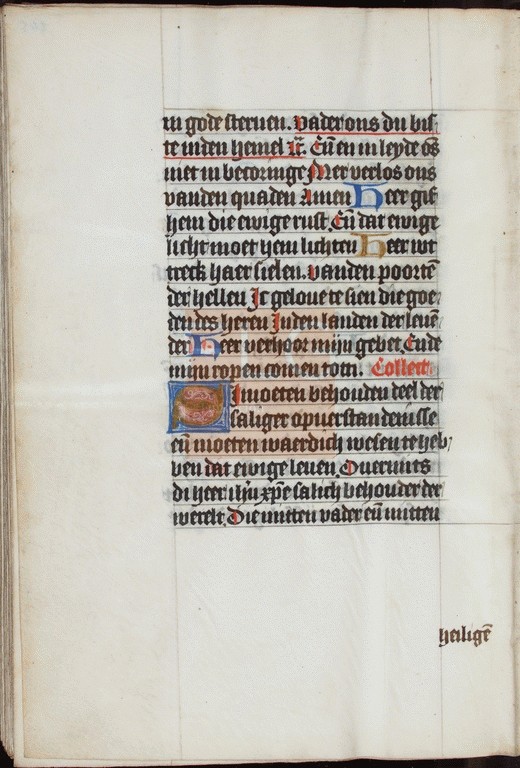 in gode steruen. vader ons du bis
te inden hemel ⁊c̃. Eñ en in leyde õs
niet in becoringe Mer verlos ons
vanden quaden Amen Heer gif
hem die ewige rust Eñ dat ewige
licht moet hem lichten Heer wt
treck haer sielen. vanden poortē
der hellen Ic geloue te sien die goe
den des heren Inden landen der leuē
der Heer verhoor mijn gebet Ende
mijn ropen comen totti. Collect
Si moeten behouden deel der
saliger opuerstandenisse
eñ moeten waerdich wesen te heb
ben dat ewige leuen Ouermits
di heer ihũ xp̄e salich behouder der
werelt Die mitten vader eñ mitten
heiligē